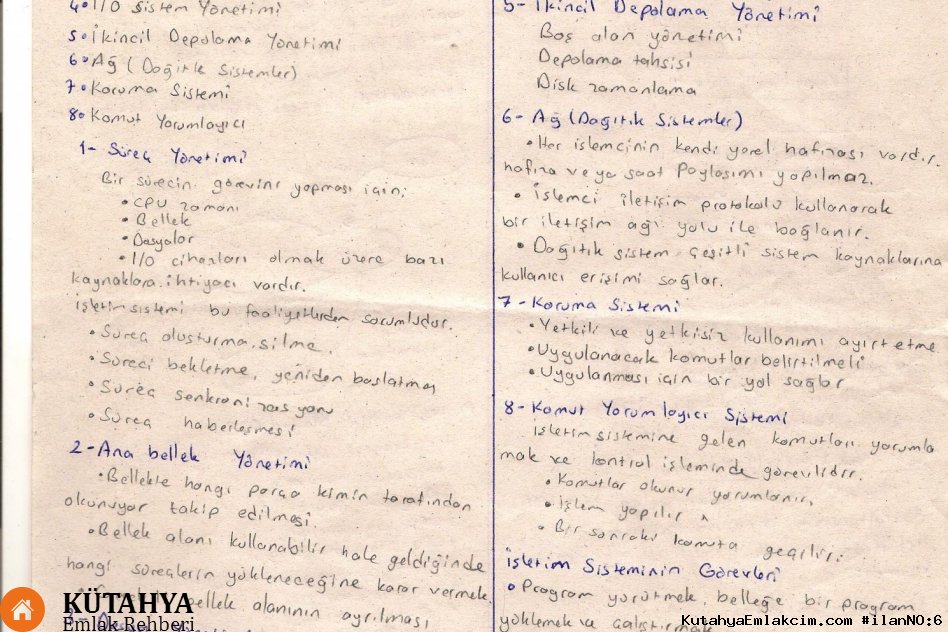 4. I/O Sistem Yönetimi
5. İkincil Depolama Yönetimi
6. Ağ (Dağıtık Sistemler)
7. Koruma Sistemi
8. Komut Yorumlayıcı
1- Süreç Yönetimi
Bir sürecin görevini yapması için;
• CPU zamanı
• Bellek
• Dosyalar
• I/O cihazları olmak üzere bazı
kaynaklara ihtiyacı vardır.
işletim sistemi bu faaliyetlerden sorumludur.
• Süreç oluşturma, silme,
• Süreci bekletme, yeniden başlatma
• Süreç senkronizasyonu
• Süreç haberleşmesi
2- Ana bellek Yönetimi
• Bellekte hangi parça kimin tarafından
okunuyor takip edilmesi.
• Bellek alanı kullanabilir hale geldiğinde
hangi süreçlerin yükleneceğine karar vermek
bellek alanının ayrılması
5- İkincil Depolama Yönetimi
Boş alan yönetimi
Depolama tahsisi
Disk zamanlama
6- Ağ (Dağıtık Sistemler)
• Her işlemcinin kendi yerel hafızası vardır.
hafıza veya saat paylaşımı yapılmaz.
• İşlemci iletişim protokolü kullanarak
bir iletişim ağı yolu ile bağlanır.
• Dağıtık sistem çeşitli sistem kaynaklarına
kullanıcı erişimi sağlar.
7- Koruma Sistemi
• Yetkili ve yetkisiz kullanımı ayırt etme
• Uygulanacak komutlar belirtilmeli
• Uygulanması için bir yol sağlar
8- Komut Yorumlayıcı Sistemi
işletim sistemine gelen komutları yorumla
mak ve kontrol işleminde görevlidir.
• Komutlar okunur yorumlanır,
• İşlem yapılır
• Bir sonraki komuta geçilir.
İşletim Sisteminin Görevleri
• Program yürütmek, belleğe bir program
yüklemek ve çalıştırmak
KÜTAHYA
Emlak Rehberi
KutahyaEmlakcim.com #ilanNO:6